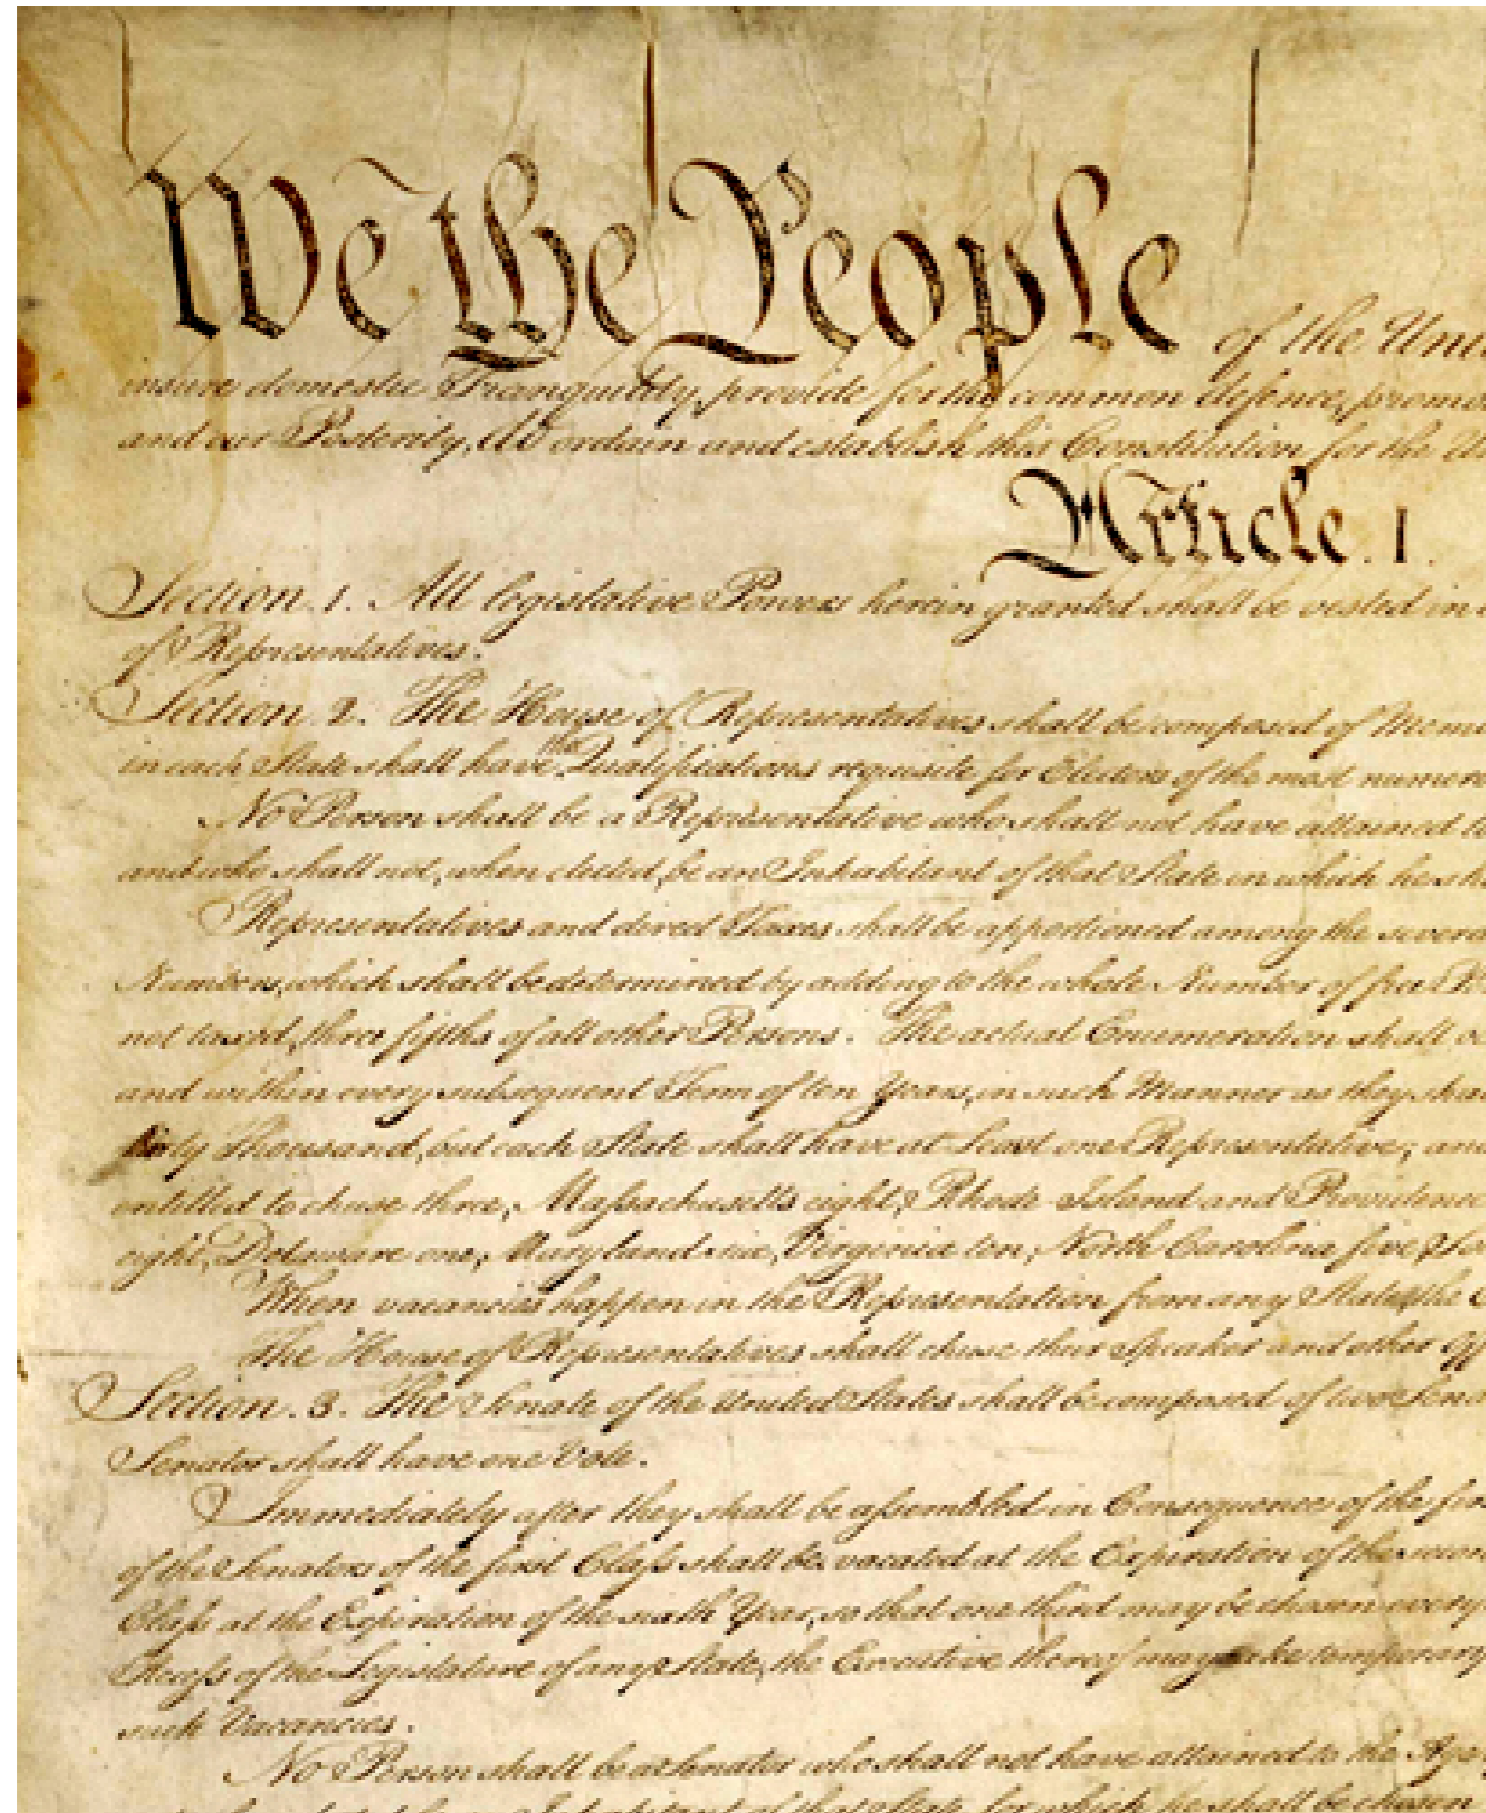 We the People of the Uni
insure domestic Tranquility, provide for the common defence, promo
and our Posterity, do ordain and establish this Constitution for the U
Article. I.
Section. 1. All legislative Powers herein granted shall be vested in
of Representatives.
Section. 2. The House of Representatives shall be composed of Mem
in each State shall have the Qualifications requisite for Electors of the most numero
No Person shall be a Representative who shall not have attained t
and who shall not, when elected, be an Inhabitant of that State in which he sh
Representatives and direct Taxes shall be apportioned among the severa
Numbers, which shall be determined by adding to the whole Number of free Pe
not taxed, three fifths of all other Persons. The actual Enumeration shall be
and within every subsequent Term of ten Years, in such Manner as they shal
thirty Thousand, but each State shall have at Least one Representative; and
entitled to chuse three, Massachusetts eight, Rhode-Island and Providence
eight, Delaware one, Maryland six, Virginia ten, North Carolina five, So
When vacancies happen in the Representation from any State, the E
The House of Representatives shall chuse their Speaker and other Off
Section. 3. The Senate of the United States shall be composed of two Sena
Senator shall have one Vote.
Immediately after they shall be assembled in Consequence of the fir
of the Senators of the first Class shall be vacated at the Expiration of the secon
Class at the Expiration of the sixth Year, so that one third may be chosen every
Recess of the Legislature of any State, the Executive thereof may make temporary
such Vacancies.
No Person shall be a Senator who shall not have attained to the Age
Inhabitant of that State for which he shall be chosen